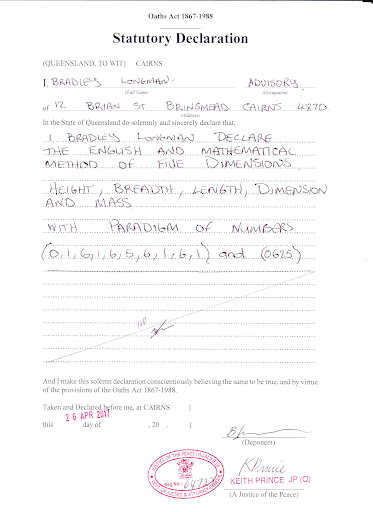 Oaths Act 1867-1988
Statutory Declaration
(QUEENSLAND, TO WIT) CAIRNS
I, BRADLEY LONGMAN. ADVISORY.
(Full Name) (Occupation)
of 12 BRIAN ST BRINSMEAD CAIRNS 4870.
(Address)
In the State of Queensland do solemnly and sincerely declare that,
I BRADLEY LONGMAN DECLARE
THE ENGLISH AND MATHEMATICAL
METHOD OF FIVE DIMENSIONS
HEIGHT, BREADTH, LENGTH, DIMENSION
AND MASS
WITH PARADIGM OF NUMBERS
(0,1,6,1,6,5,6,1,6,1) and (0625)
And I make this solemn declaration conscientiously believing the same to be true, and by virtue
of the provisions of the Oaths Act 1867-1988.
Taken and Declared before me, at CAIRNS ]
26 APR 2017
this day of , 20 . ]
(Deponent)
JUSTICE OF THE PEACE (QUALIFIED)
Reg. No.:
KEITH PRINCE JP (Q)
(A Justice of the Peace)